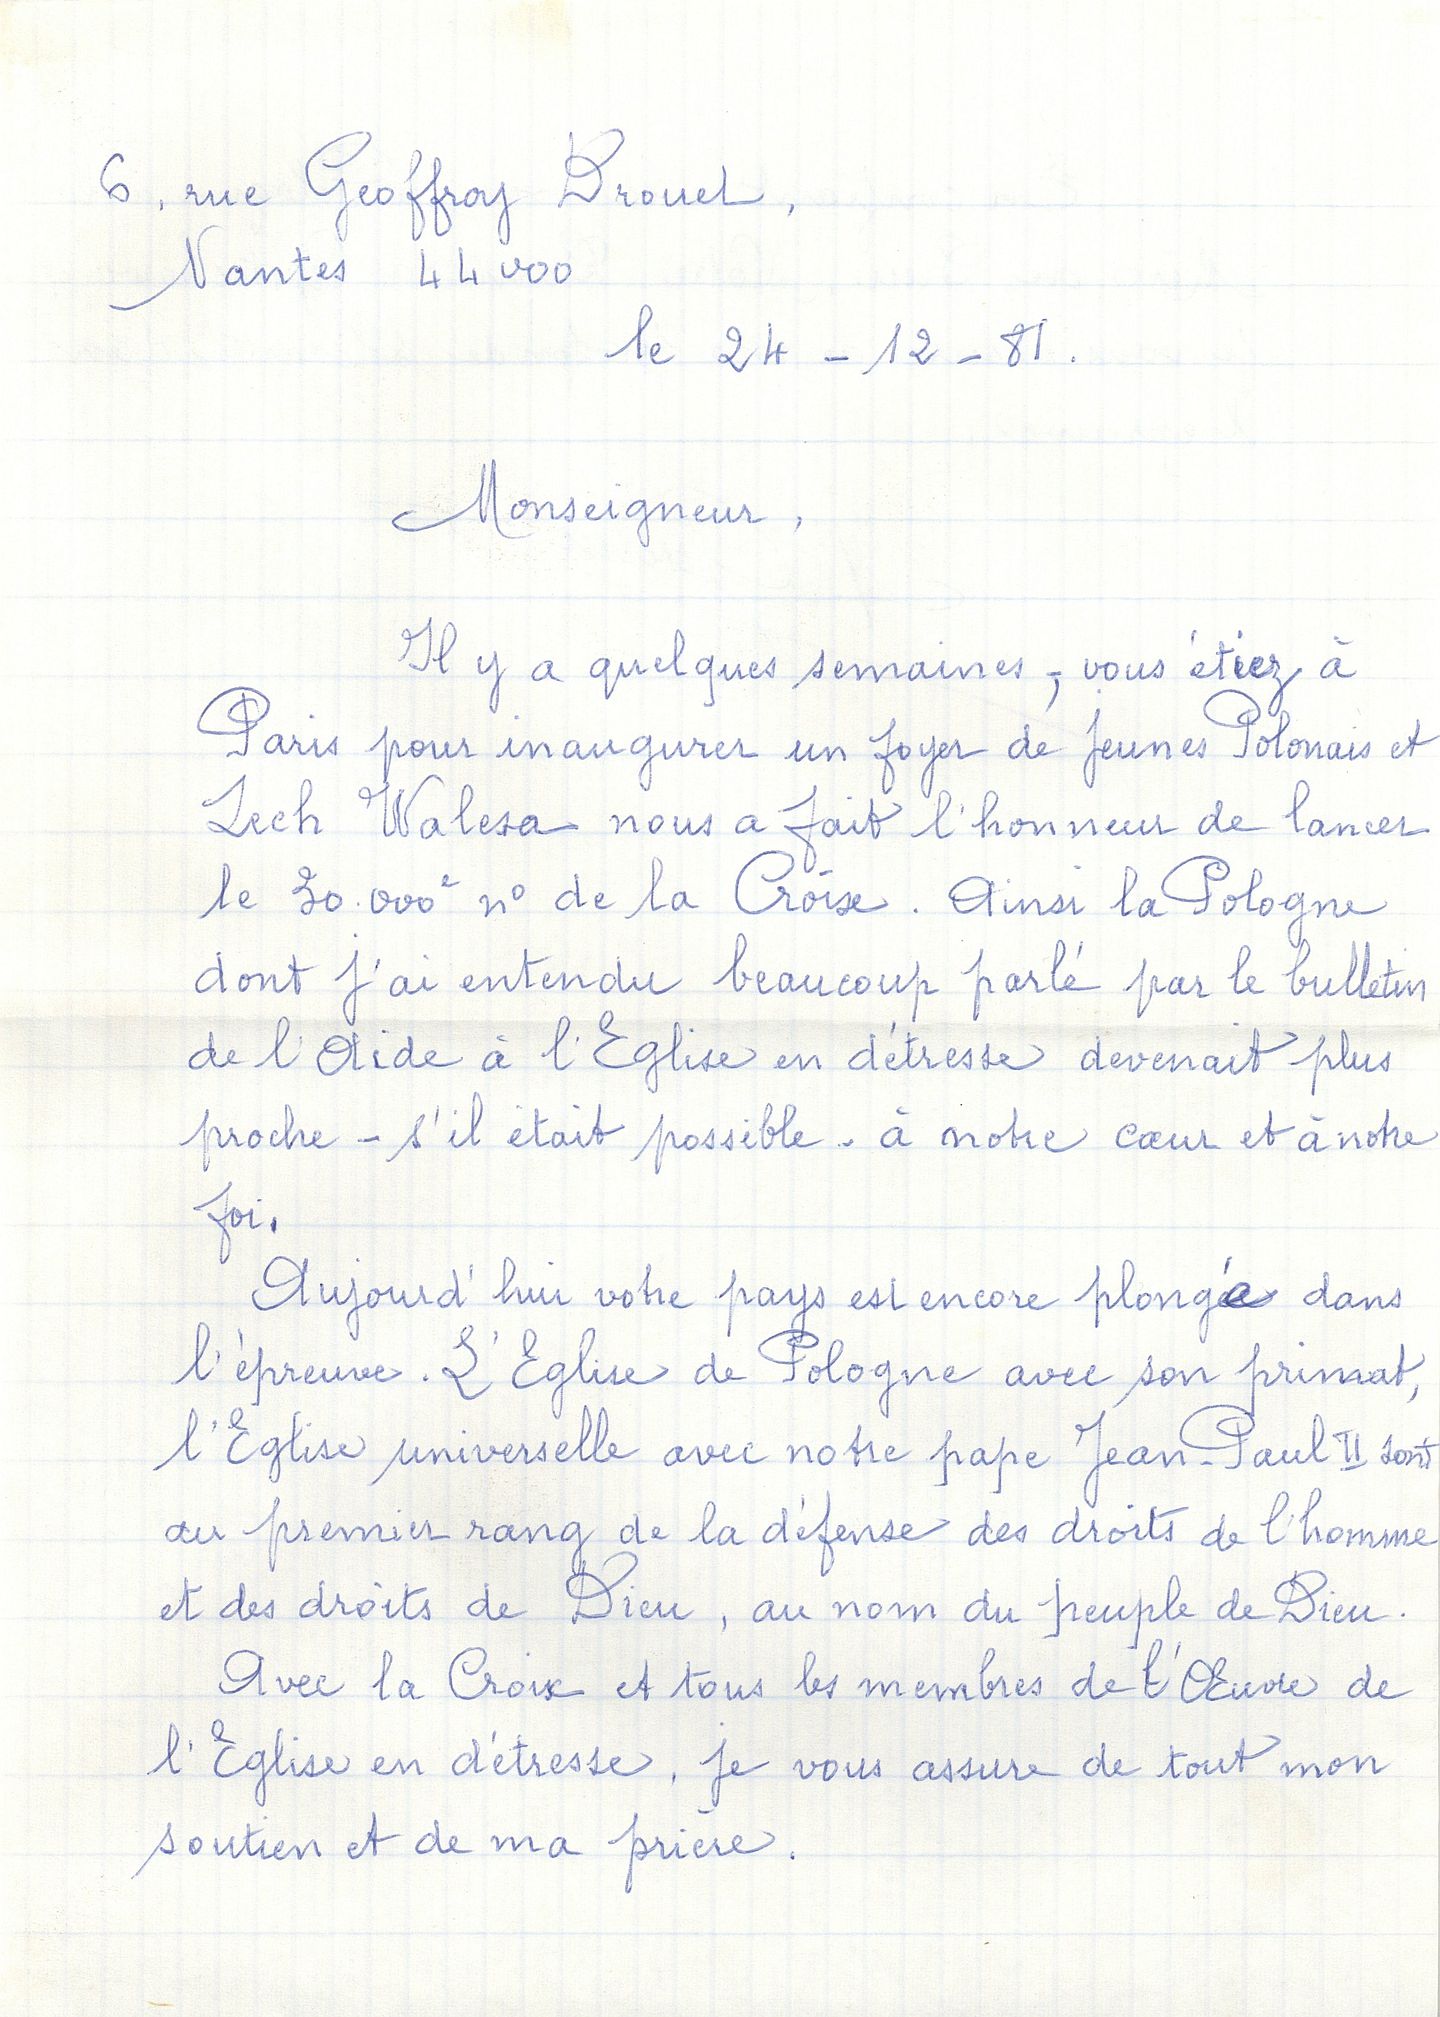 6, rue Geoffroy Drouet,
Nantes 44000
le 24 - 12 - 81.
Monseigneur,
Il y a quelques semaines, vous étiez à
Paris pour inaugurer un foyer de jeunes Polonais et
Lech Walesa nous a fait l'honneur de lancer
le 30.000e no de la Croix. Ainsi la Pologne
dont j'ai entendu beaucoup parlé par le bulletin
de l'Aide à l'Eglise en détresse devenait plus
proche - s'il était possible - à notre cœur et à notre
foi.
Aujourd'hui votre pays est encore plongé dans
l'épreuve. L'Eglise de Pologne avec son primat,
l'Eglise universelle avec notre pape Jean-Paul II sont
au premier rang de la défense des droits de l'homme
et des droits de Dieu, au nom du peuple de Dieu.
Avec la Croix et tous les membres de l'Œuvre de
l'Eglise en détresse, je vous assure de tout mon
soutien et de ma prière.